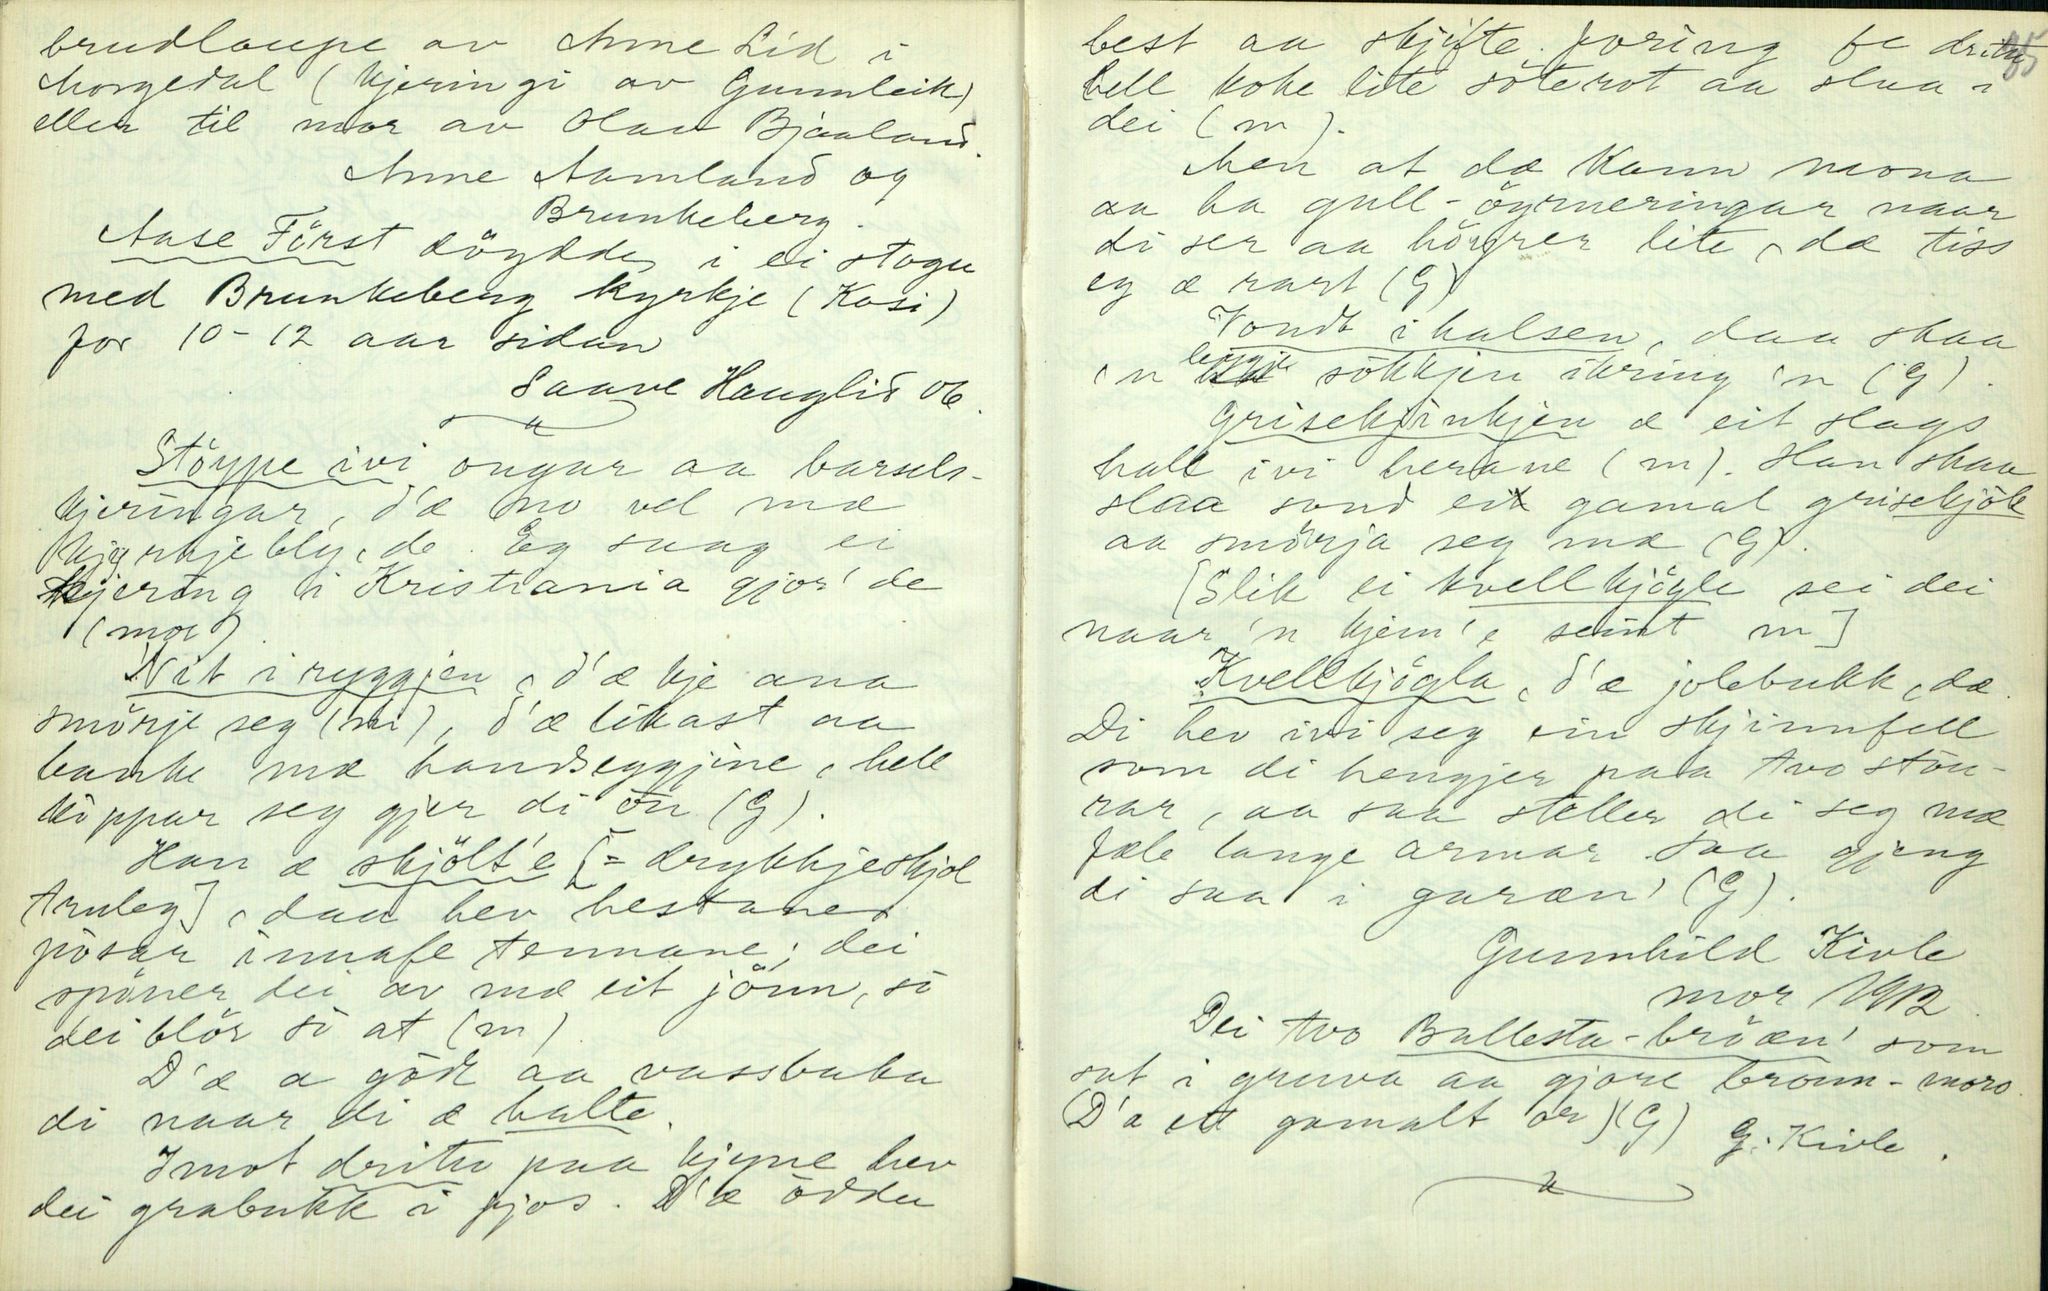 brudlaupe av Anne Lid i
Morgedal (kjeringi av Gunnleik)
eller til mor av Olav Bjaaland.
Anne Aamland og
Brunkeberg.
Aase Först döydde i ei stogu
med Brunkeberg kyrkje (Kosi)
for 10-12 aar sidan
Saave Hauglid Ob.
Stöype ivi ongar aa barsels-
kjeringar, d'æ no vel mæ
kjyrkjebly, de. Eg saag ei
kjering i Kristiania gjor' de
(mor)
Vit i ryggjen, d'æ kje ana
smörje seg (m), d'æ likast aa
banke mæ handseggjine, hell
kippar seg gjer di ön (G).
Han æ skjölt'e [= drykkjeskjol
truleg], daa hev hestane
pösar innafe tennane; dei
spöner dei av mæ eit jönn, so
dei blör so at (m)
D'æ a gödt aa vassbaka
di naar di æ halte.
Imot dritu paa kjyne hev
dei grabukk i fjos. D'æ ödder
best aa skjifte foring fe dritu
hell koke lite söterot aa slaa i
dei (m).
Men at dæ kann mona
aa ha gull-öyrneringar naar
di ser aa höyrer lite, dæ tiss
eg æ rart (G)
Vondt i halsen, daa skaa
'n bengje sökkjen ikring 'n (G).
Grisekjinkjen æ eit slags
hall ivi herane (m). Han skaa
slaa sund eit gamal grisekjök
aa smörja seg mæ (G).
[Slik ei kvellkjögle sei dei
naar 'n kjem'e seint m]
Kvellkjögla, d'æ jolebukk, dæ.
Di hev ivi seg ein skjinnfell
som di hengjer paa tvo stön-
rar, aa saa steller di seg mæ
fæle lange armar. Saa gjeng
di saa i garæn' (G).
Gunnhild Kivle
mor 1912.
Dei tvo Ballesta-bröæn' som
sat i gruva aa gjore broun-moro.
(D'æ et gamalt or) (G) G. Kivle.